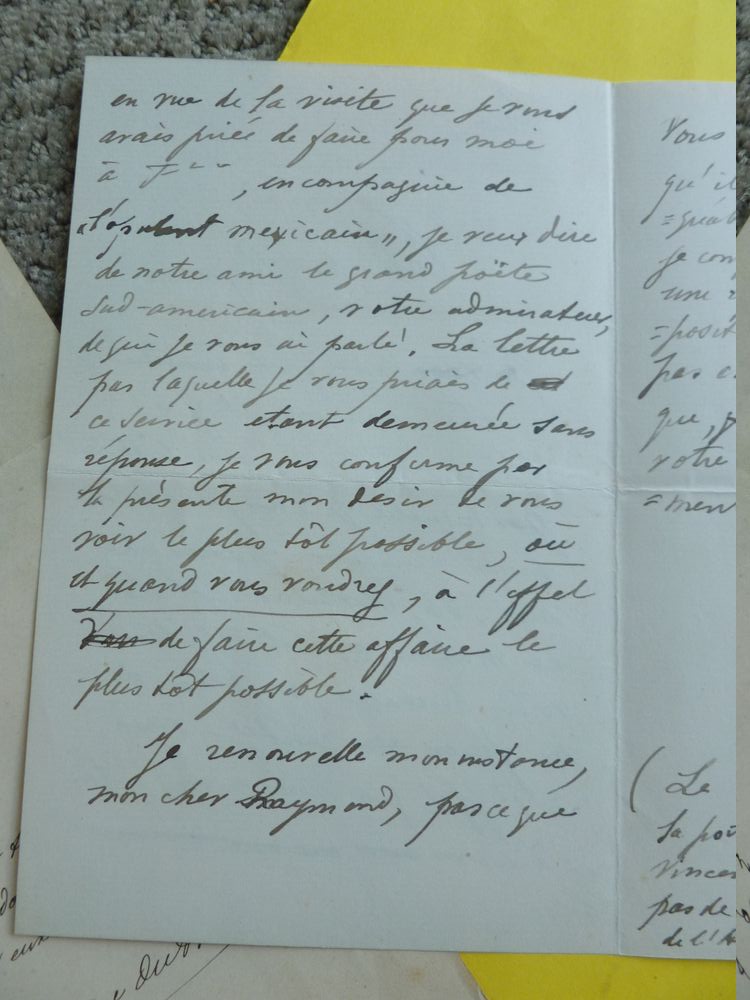 en vue de la visite que je vous
avais priée de faire pour moi
à F--- , en compagnie de
"l'opulent mexicain", je veux dire
de notre ami le grand poëte
sud-americain, votre admirateur,
de qui je vous ai parlé. La lettre
par laquelle je vous priais de
ce service étant demeurée sans
réponse, je vous confirme par
la présente mon désir de vous
voir le plus tôt possible, où
et quand vous voudrez, à l'effet
de faire cette affaire le
plus tôt possible.
Je renouvelle mon instance,
mon cher Raymond, parce que
Vous
qu'il
je con
une
=posit
pas
que,
votre
=men
( Le
la poë
pas de
de l'A